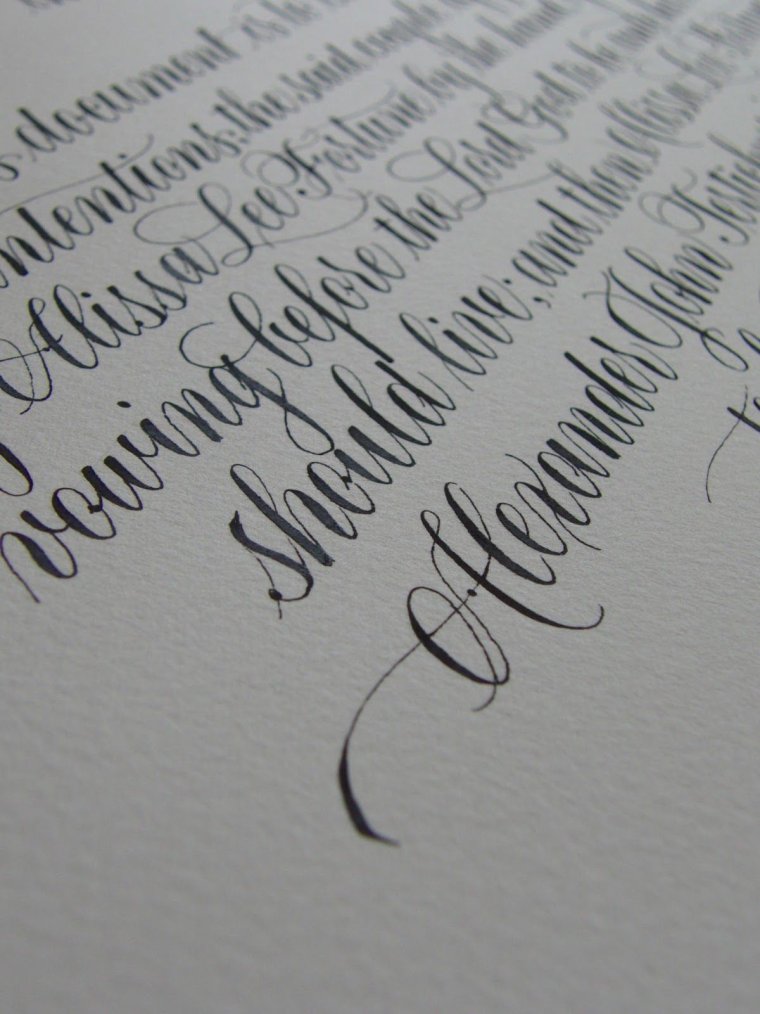 document is to
intentions, the said couple
Alissa Lee Fortune by the hand
vowing before the Lord God to be
should live; and then Alissa Lee
Alexander John